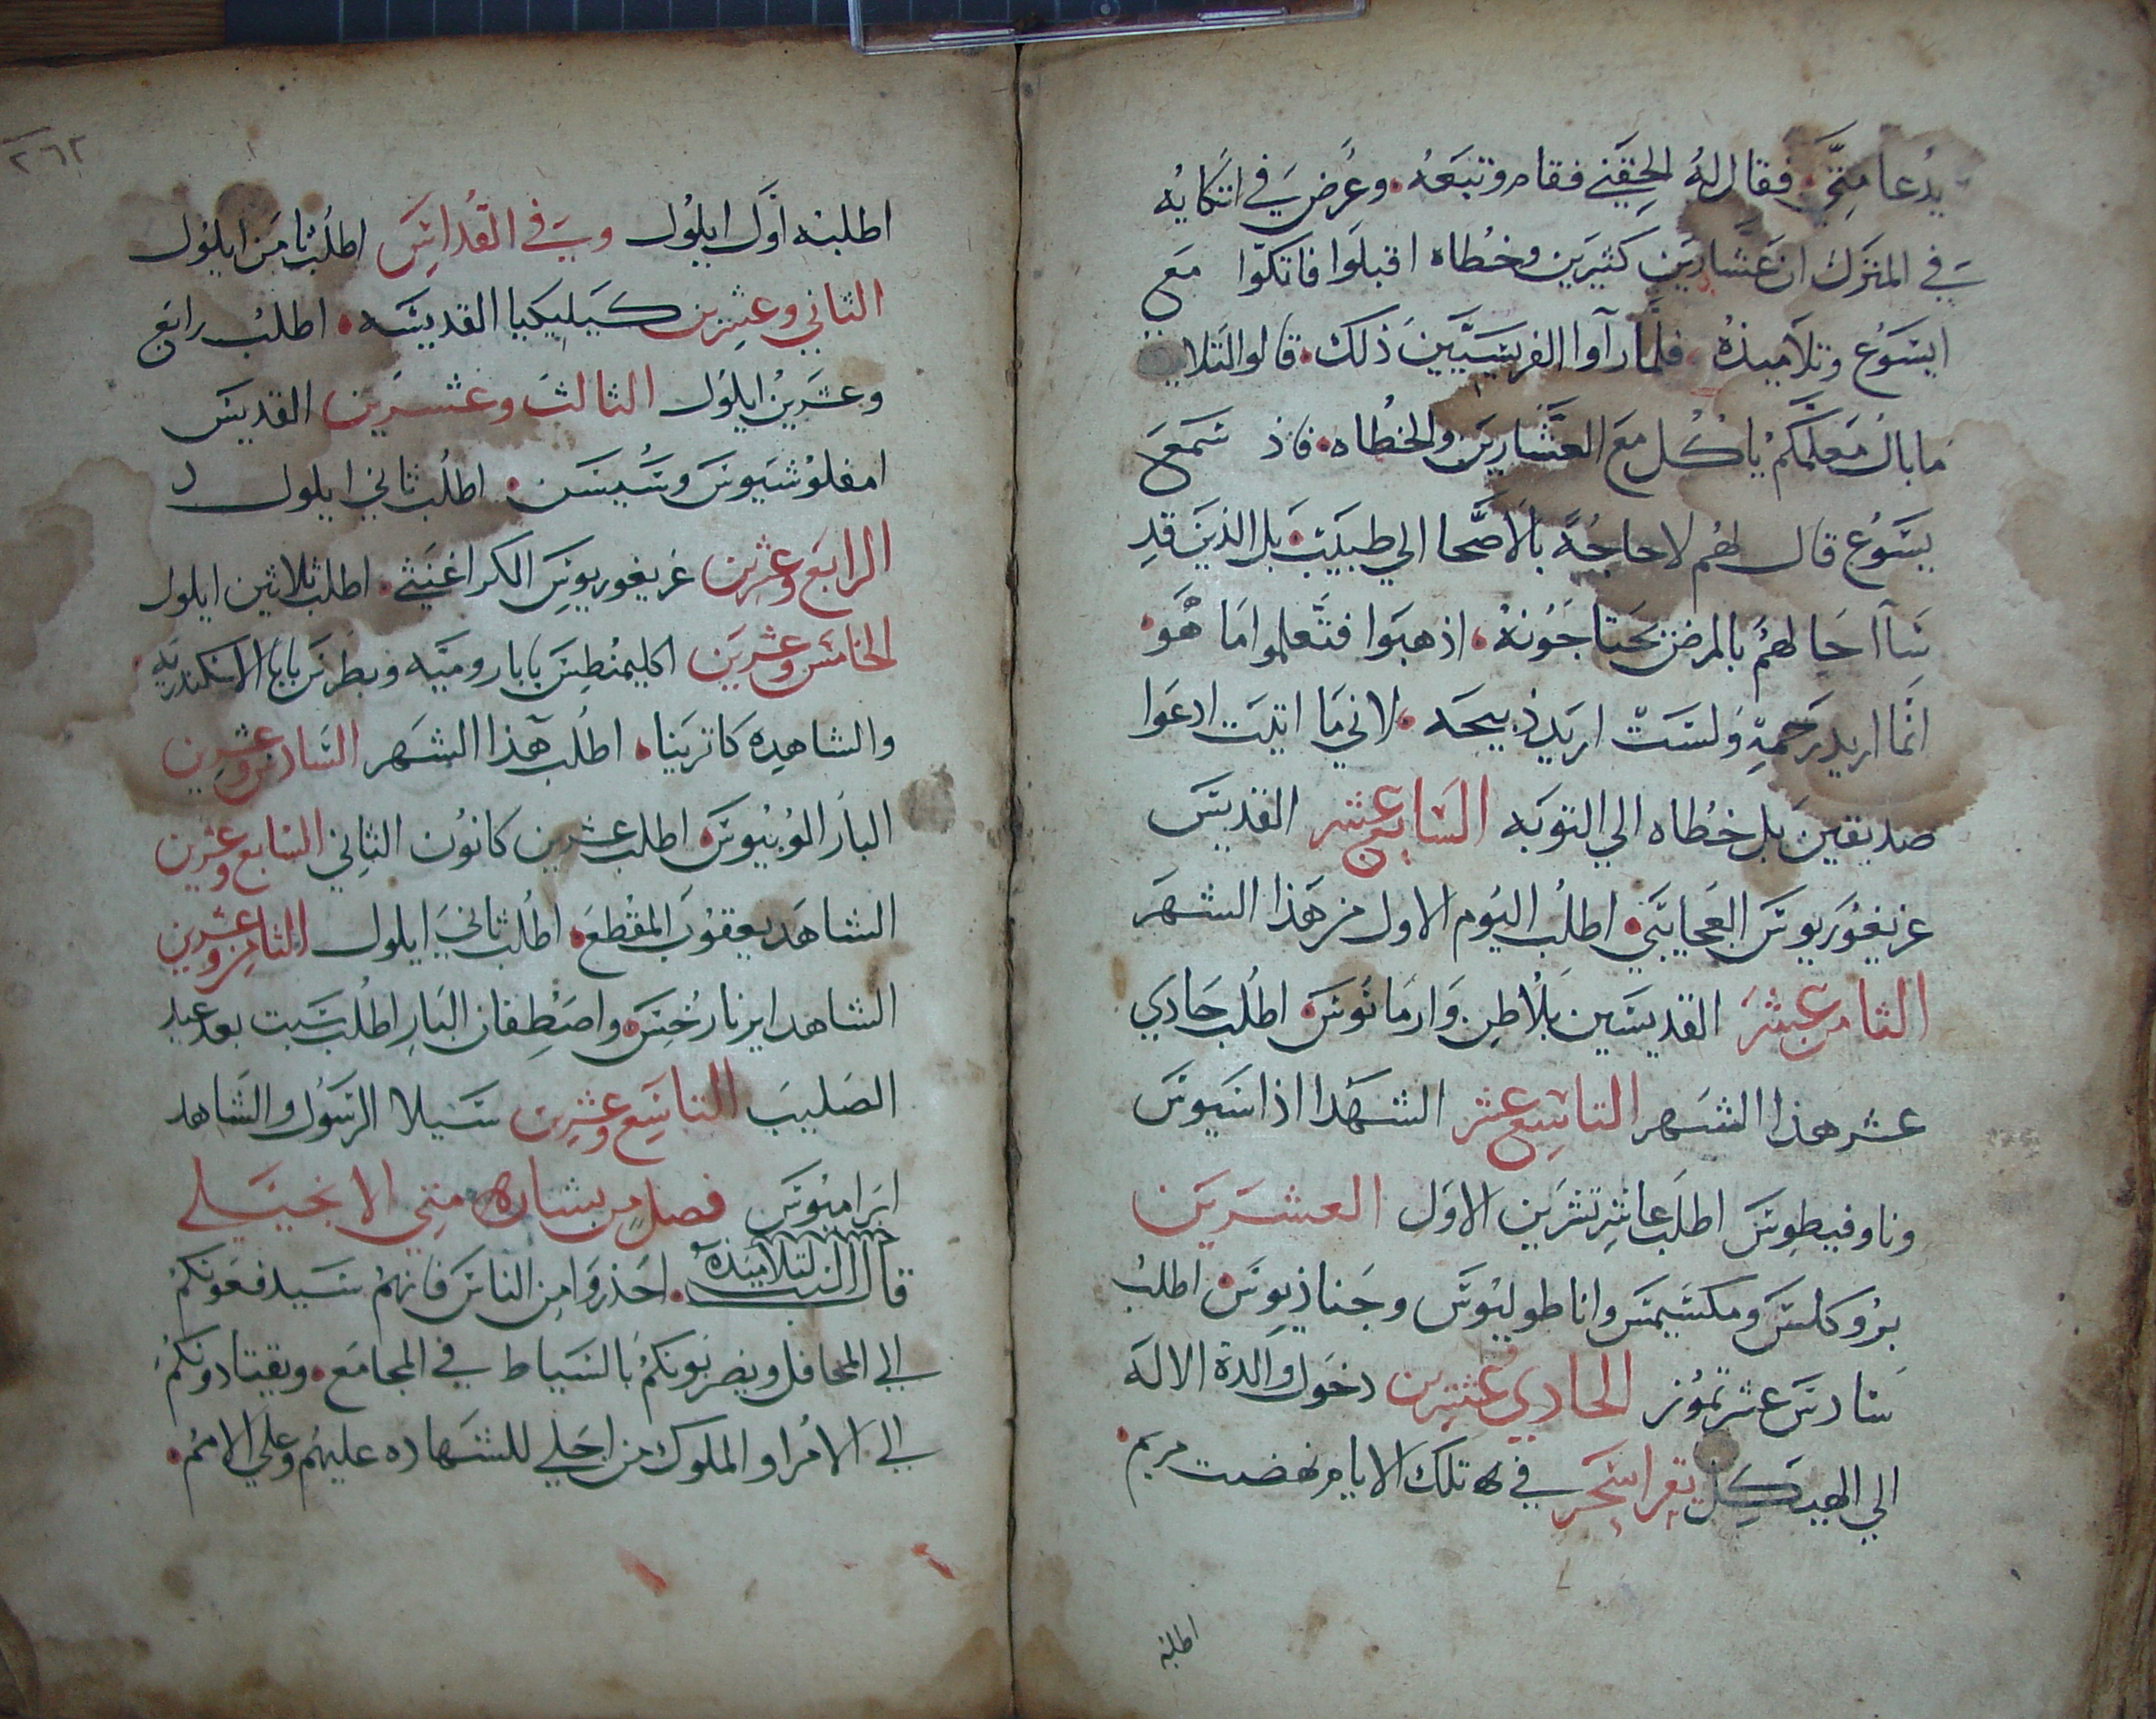 يُدعا متَّى فقال لهُ الحِقَني فقام وتبَعَهُ. وعُرِضَ في اتكايُه
في المنزل ان عَشّارين كثيرين وخُطاه اقبلَوا فاتكوّا مع
ايسَوُع وتلاميذهُ. فلمّا رآوا الفريسَيّين ذلك. قالوا لتلا
ما بال مَعَلّمكمُ ياكُل معَ العَشّارين والخُطاه. فاذ سَمعَ
يسَوُع قال لهُم لا حاجُة بالاصَّحا الي طبيَب. بل الذين قد
سَآ احَالهمُ بالمرض يحَتاجَوُنهُ. اذهبَوا فتَعلموا مَا هُوَ.
انّما اريد رَحمةِ ولسَتْ اريَد ذبيحَه. لاني مَا اتيَت ادعَوا
صديقين بل خطُاه الي التوَبه السَابع عشر القديسَ
غريغوُريوسَ العجايبَي. اطلبُ اليَوم الاول من هَذا الشهرَ
الثامن عشَر القديسَين بلُاطن وَارمَانوُسَ. اطلُب حَادي
عشر هذا الشهر التاسِع عشر الشهَدا اذاسَيوسَ
وناوفيطوسَ اطلبَ عاشِر تشرَين الاوَل العشرَين
برُوكلسَ ومكسَيمسَ واناطوليوُسَ وجَناذيوسَ. اطلبُ
سَادسَ عشر تموُز الحادي وعشرين دخوَل والدة الاله
الي الهيكل يقرا سَحَر في تلك الايام نهضت مريم.
اطلبه
٢٦٢
اطلبه اوَل ايلوُل وَفي القدُاسَ اطلُب ثامن ايلوُل
الثاني وعشرين كيَليكيا القديسَه. اطلبُ رابعَ
وعشرين ايلوُل الثالث وعشرين القديسَ
امفلوُشيَوسَ وسُيسَن. اطلُب ثاني ايلول
الرابَع وعشرين غريغوريوسَ الكراغنَثي. اطلب ثلاثين ايلول
الخامسَ وعشرين اكليمنُطسَ بابا روميَه وبطرسَ بابا الاسَكندريه
والشاهده كاتريَنا. اطلُب هَذا الشهر السَادس وعشرين
البار الوُبيُوسَ اطلب عشرين كانوُن الثاني السابع وعشرين
الشاهَد يعقوُب المقْطعَ. اطلُب ثانيَ ايلول الثامن وعشرين
الشاهد ايرنارخُسَ واصَطفان البَار اطلُب سَبت بعد عيد
الصَليبَ التاسَع وعشرين سَيلا الرسَوُل والشاهد
ابَراميوُسَ فصل من بشاره متي الانجيلي
قال الرب لتلاميذهُ. احَذروَا من الناسَ فانهمُ سَيَدفعَونكمُ
الي المحافل ويضربوَنكمُ بالسَياط في المجامَع. ويقتادوَنكمُ
الي الامُرا والملوك من اجَلي للشهَاده عليهُم وعلي الامُم.